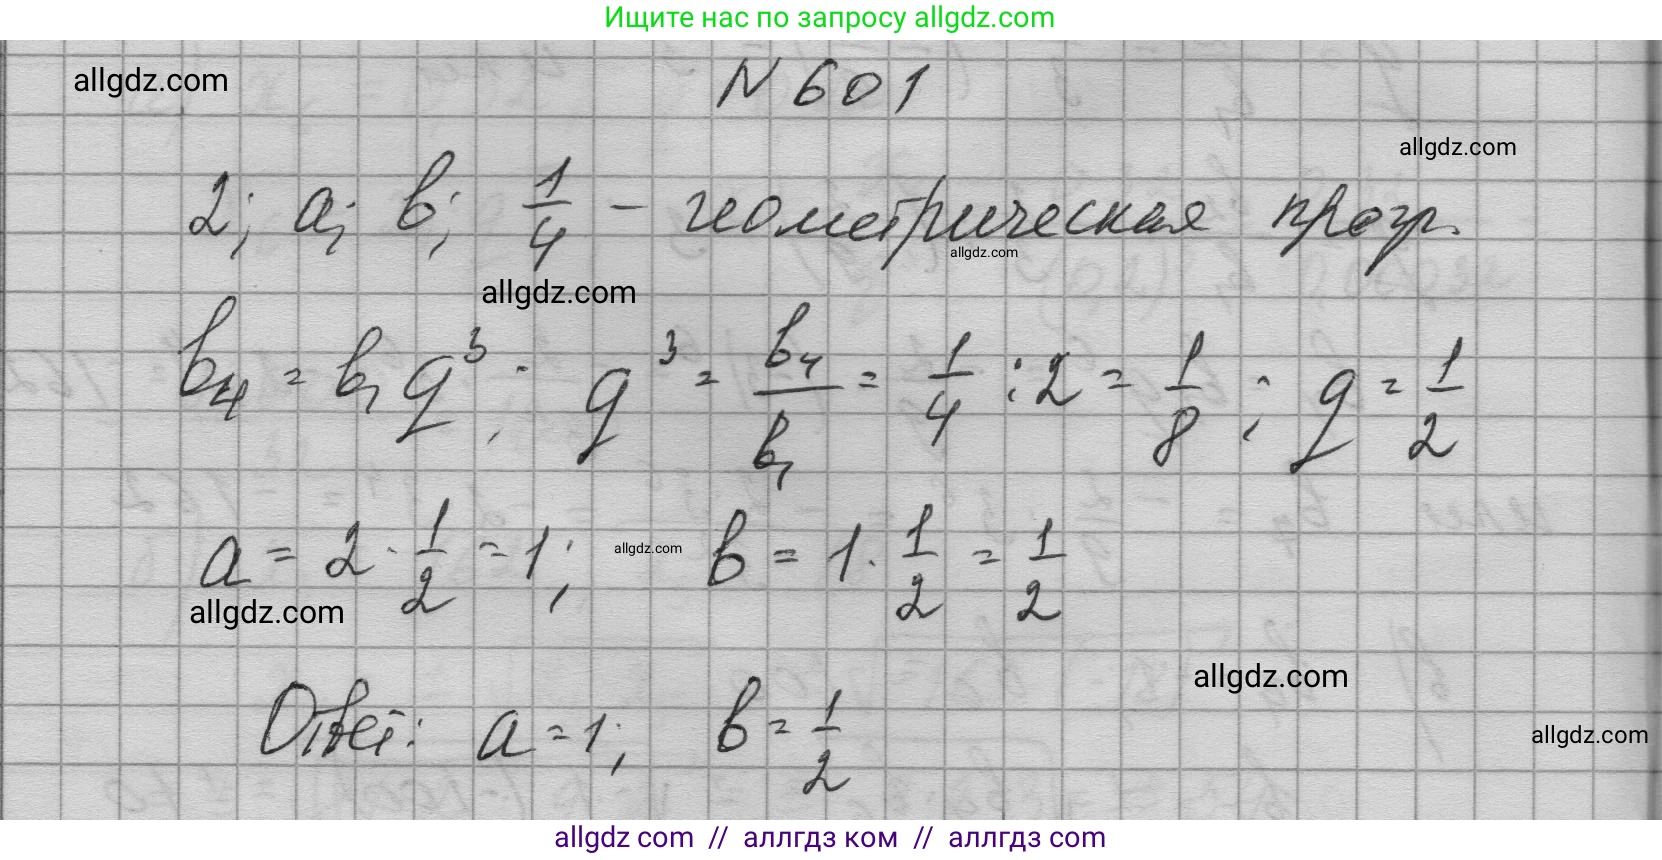 Ищите нас по запросу allgdz.com
allgdz.com
N 601
allgdz.com
2; a; b; 1/4 – геометрическая прогр.
allgdz.com
allgdz.com
b₄ = b₁q³; q³ = b₄/b₁ = 1/4 : 2 = 1/8; q = 1/2
a = 2 · 1/2 = 1; b = 1 · 1/2 = 1/2
allgdz.com
allgdz.com
allgdz.com
Ответ: a = 1; b = 1/2
allgdz.com
allgdz com // аллгдз ком // аллгдз com